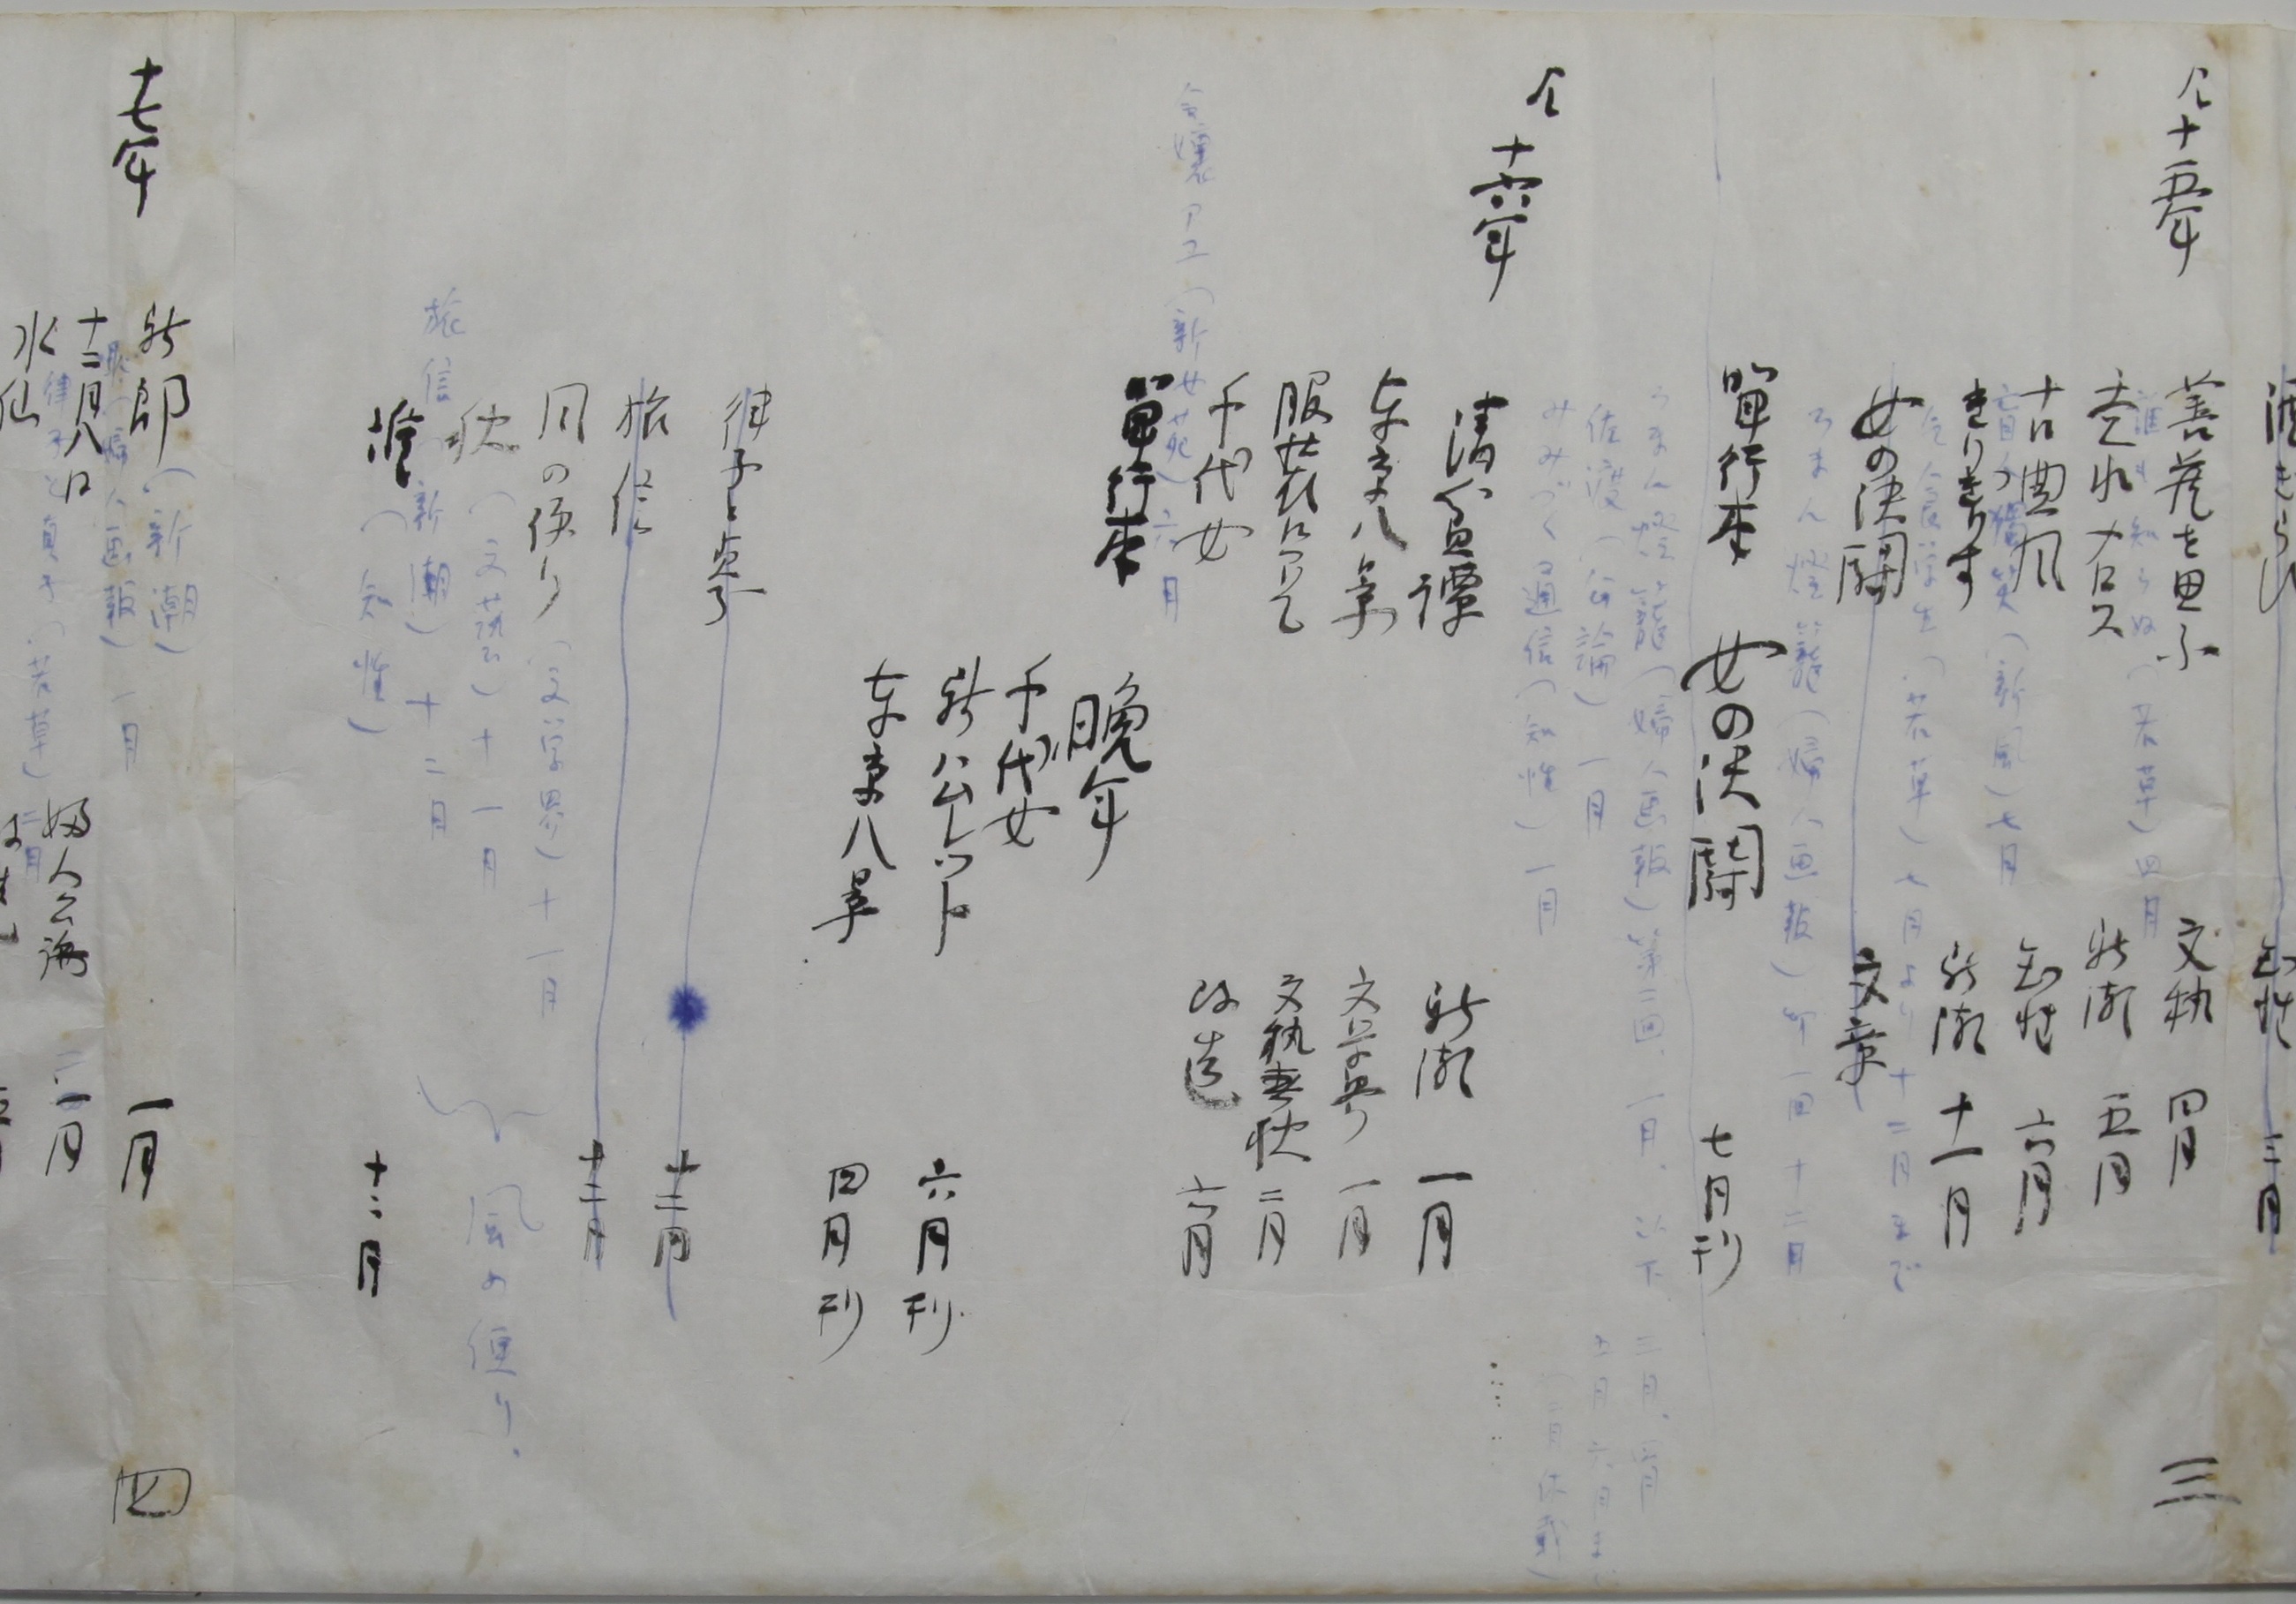 酒ぎらひ 知性 三月
仝十五年 善蔵を思ふ 文執 四月
誰も知らぬ（若草）四月
走れメロス 新潮 五月
古典風 知性 六月
盲人獨笑（新風）七月
きりぎりす 新潮 十一月
乞食学生（若草）七月より十二月まで
女の決闘 文章
ろまん燈籠（婦人画報）第一回 十二月
單行本 女の決闘 七月刊
ろまん燈籠（婦人画報）第二回、一月、以下 三月、
佐渡（公論）一月
六月
みみづく通信（知性）一月
仝
十六年 清貧譚 新潮 一月
東京八景 文学界 一月
服装に就て 文執春秋 二月
千代女 改造 六月
令嬢アユ（新女苑）六月
單行本 晩年
千代女
新ハムレット 六月刊
東京八景 四月刊
律子と貞子 十二月
旅信 十二月
風の便り（文学界）十一月
秋（文芸）十一月
風の便り．
旅信（新潮）十二月
誰（知性） 十二月
三
十七年 新郎（新潮） 一月
恥（婦人画報）一月
十二月八日 婦人公論 二月
律子と貞子（若草）二月
水仙 改造
四